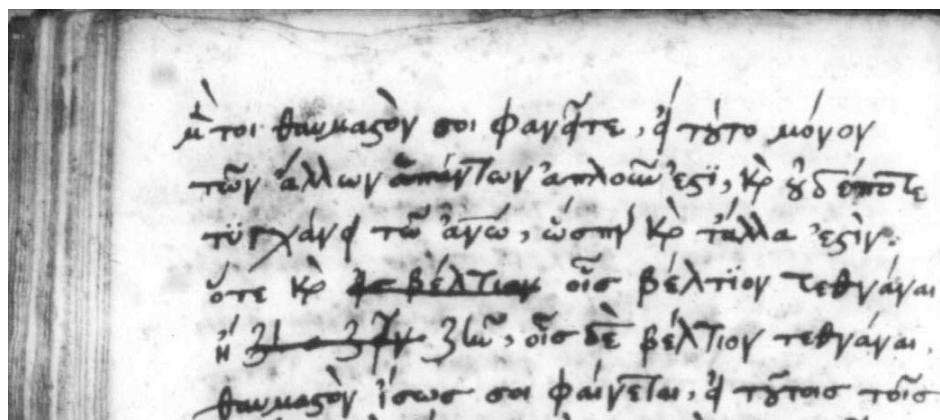 μέντοι θαυμαστὸν σοι φανεῖτε, εἰ τοῦτο μόνον
τῶν ἄλλων ἁπάντων ἁπλοῦν ἐστϊ, καὶ οὐδέποτε
τϋγχάνει τῶ ἀνω, ὥσπερ καὶ τἄλλα ἐστὶν·
ὅτε καὶ βέλτιον οἷς βέλτϊον τεθνάναι
ἢ ζῆν, οἷς δὲ βέλτιον τεθνάναι,
θαυμαστὸν ἴσως σοι φαίνεται, εἰ τούτοις τοῖς